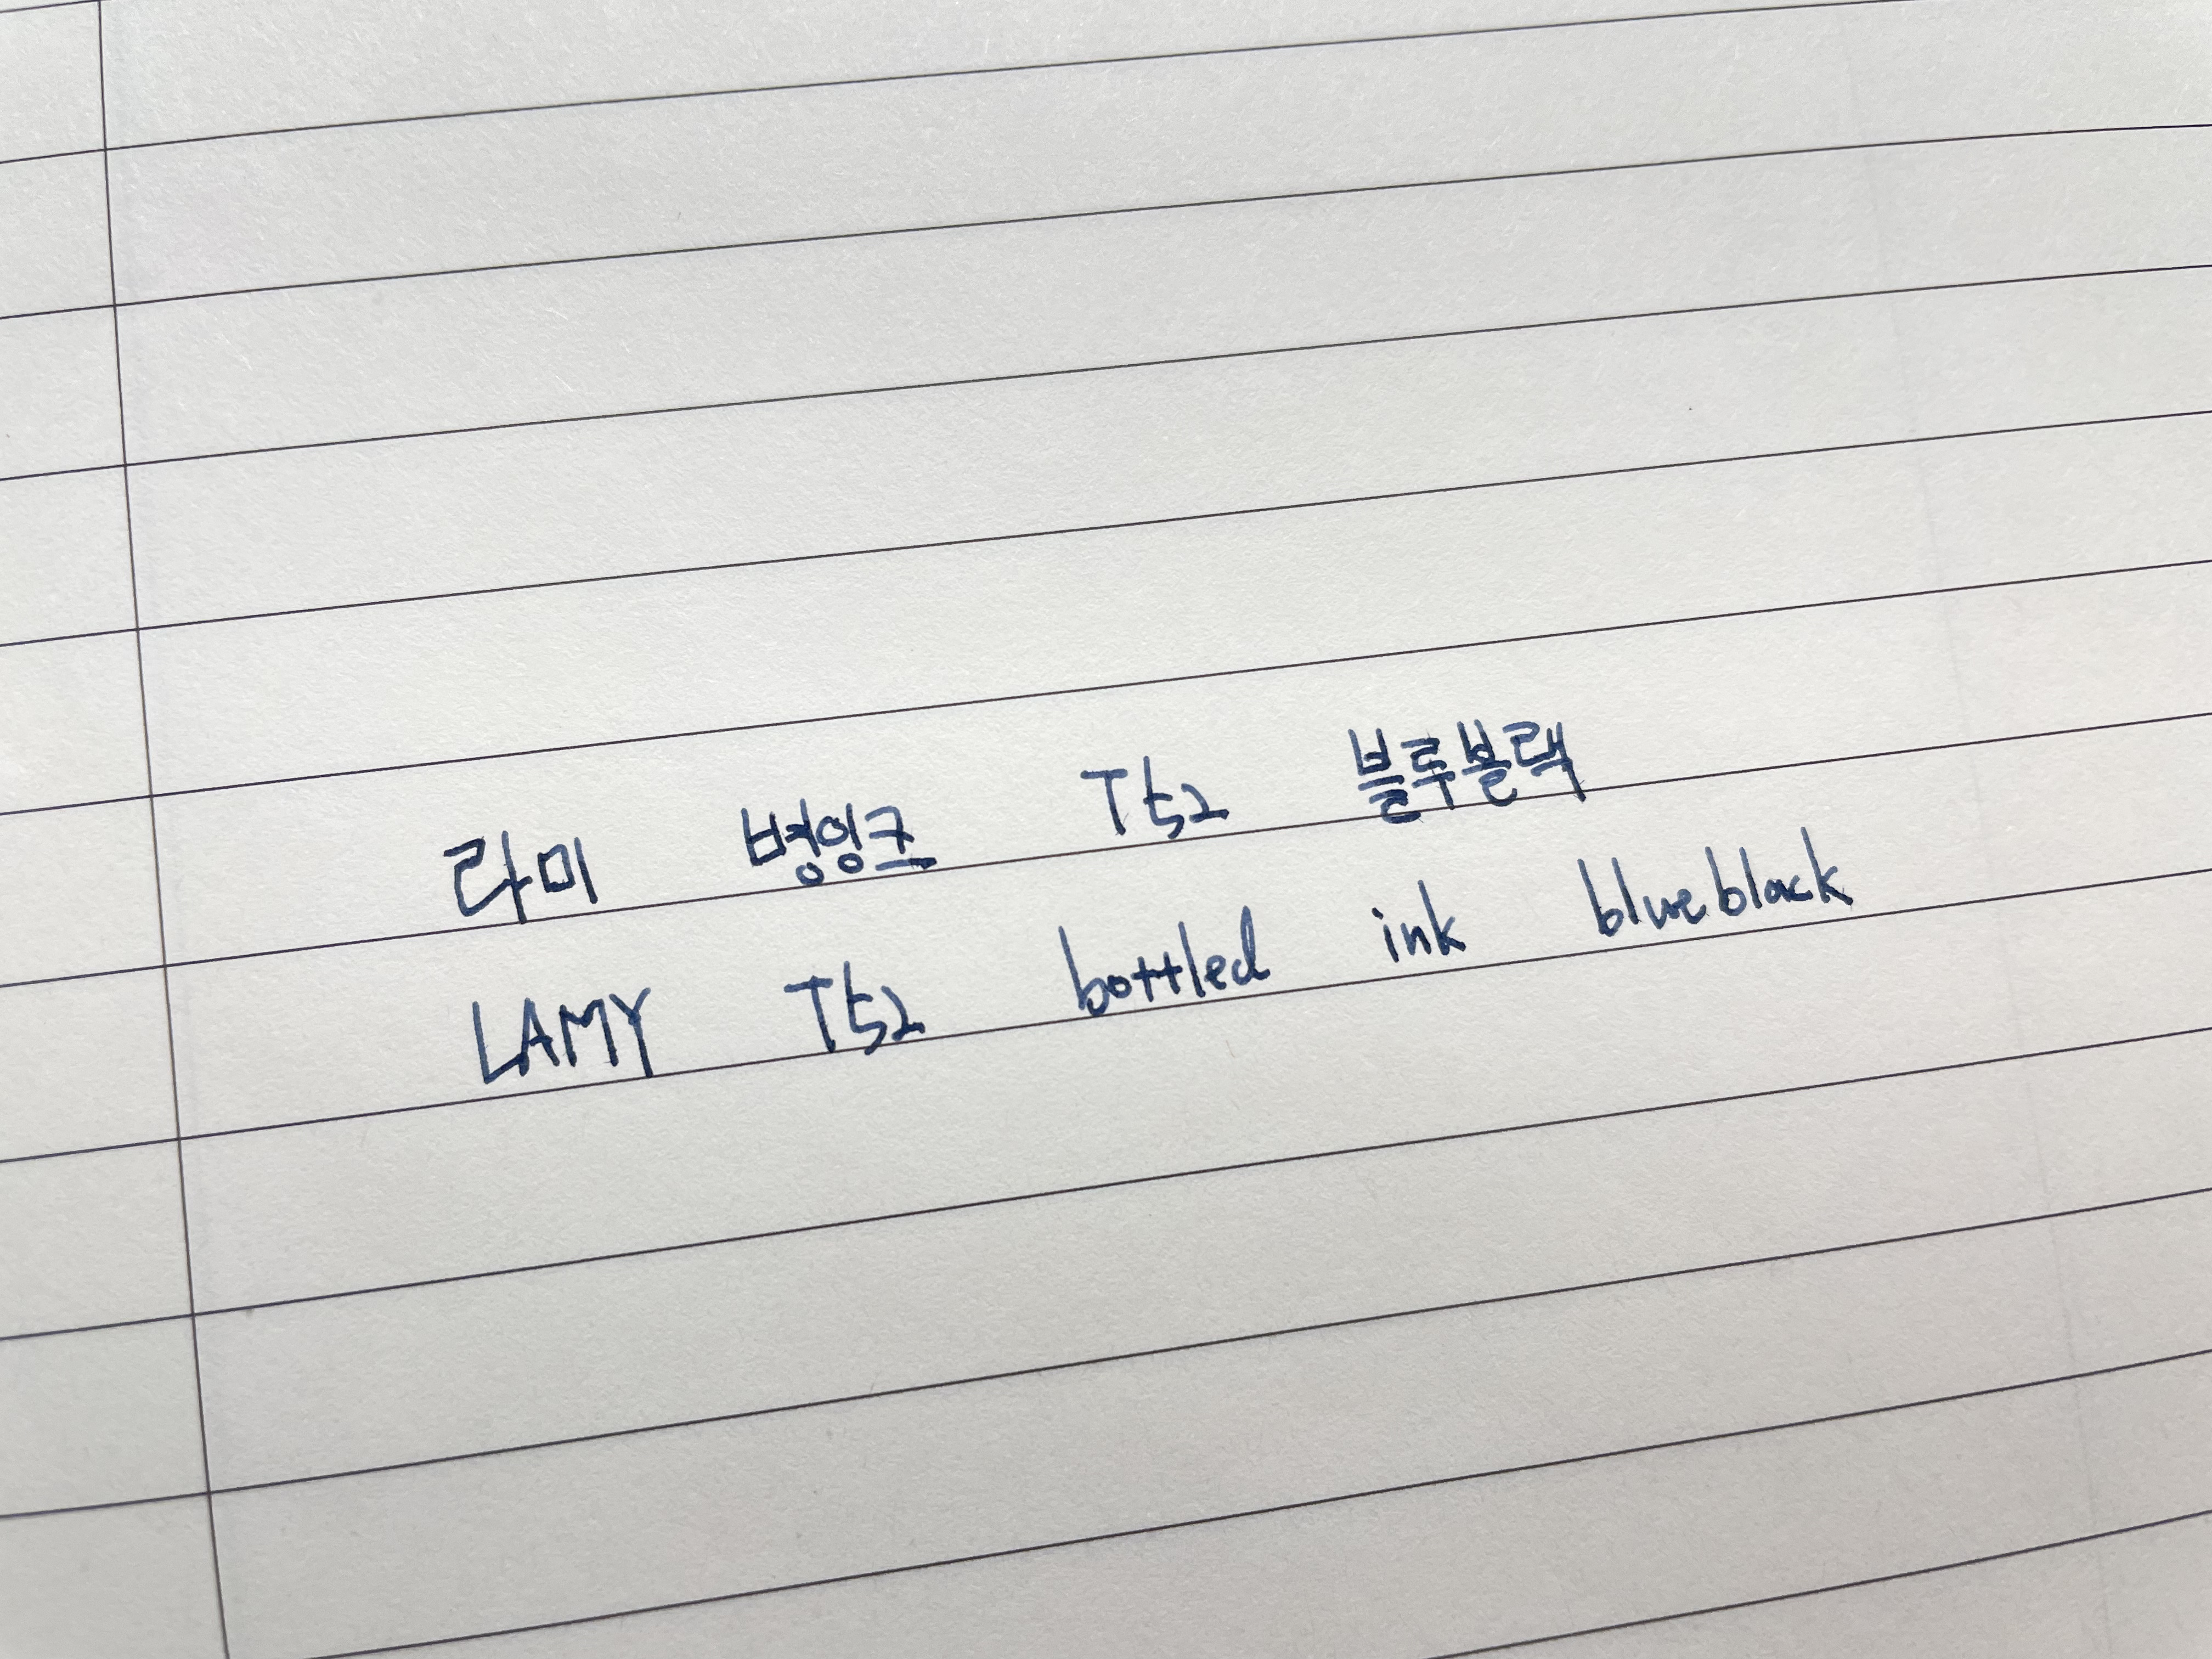 라미 병잉크 T52 블루블랙
LAMY T52 bottled ink blueblack